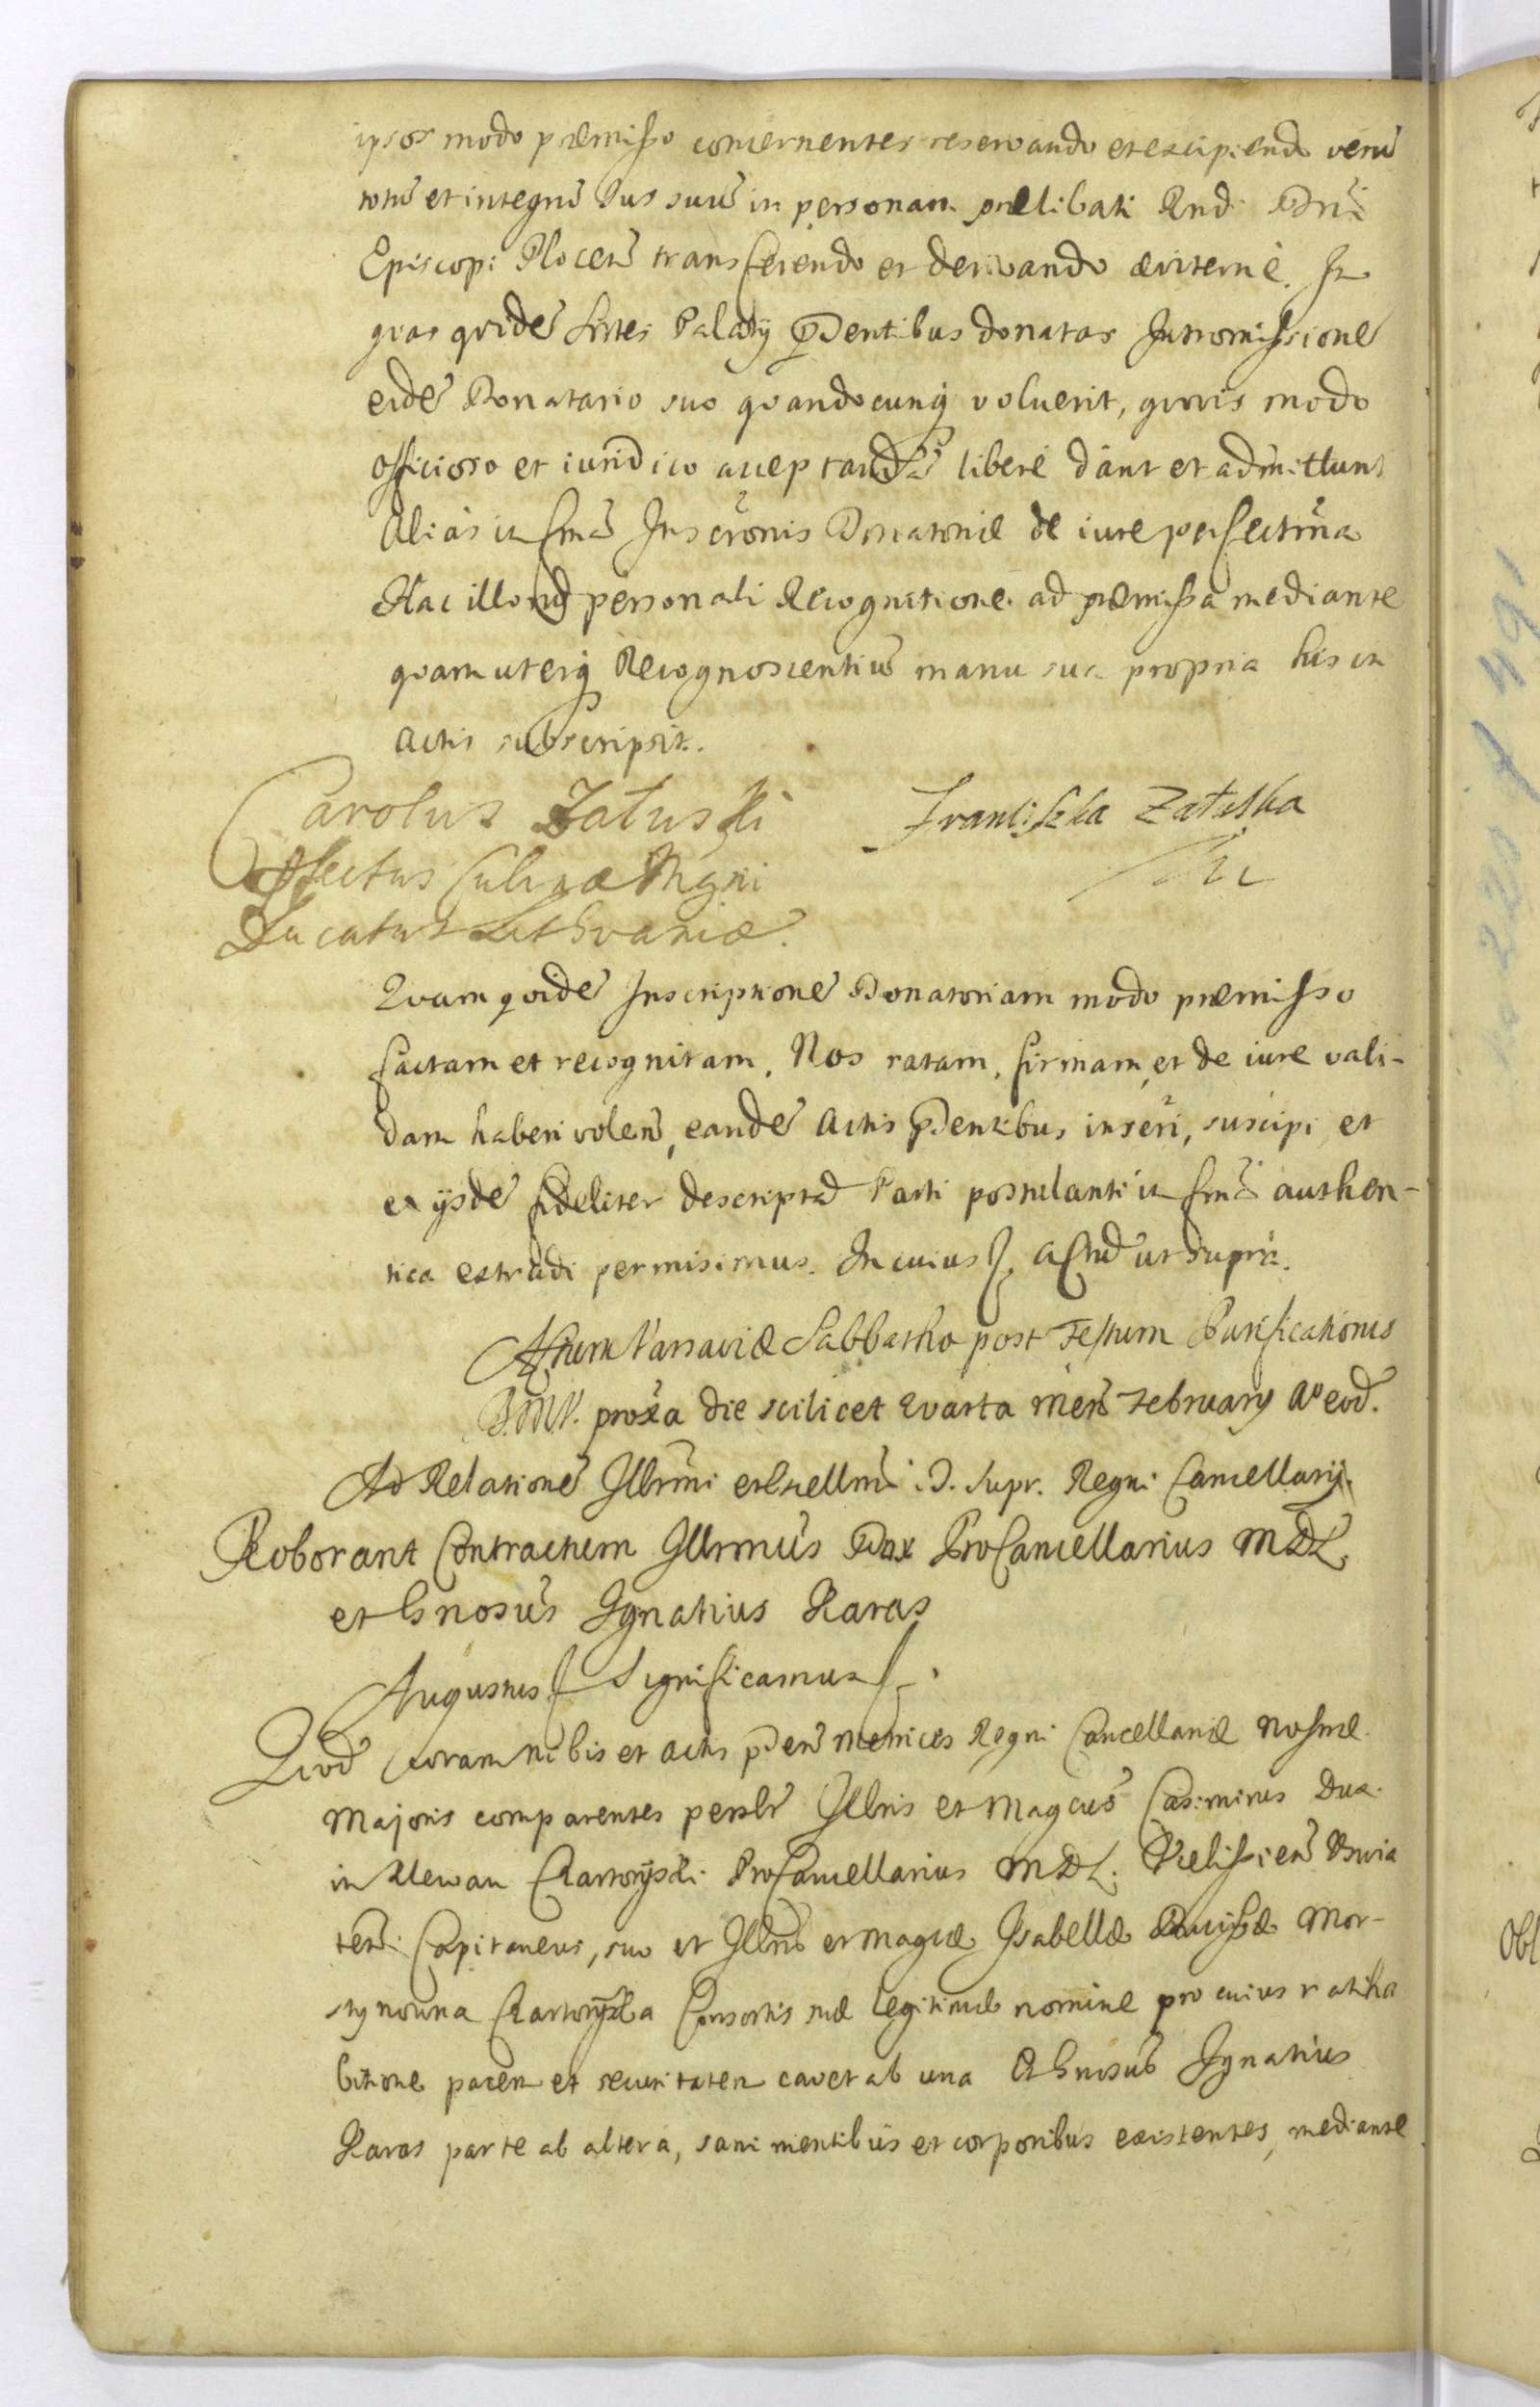 ipsos modo præmisso concernentes reservando et excipiendo verū
totū et integrū Jus suū in personam prælibati Rndi Dni
Episcopi Plocen̄ transferendo et derivando æviternè. In
quas quidē Sortes Palatij p̄dentibus donatas Intromissionē
eidē Donatario suo quandocunq̨ voluerit, quovis modo
officioso et iuridico acceptandā liberè dant et admittunt
Aliàs in fm̄a Inscr̄onis Donatoriæ de iure perfectm̄a
Hac illorū personali Recognitione ad præmissa mediante
quam uterq̨ Recognoscentiū manu sua propria his in
Actis subscripsit.
Carolus Zaluski
Præfectus Culinæ Magni
Ducatus Lithvaniæ.
Franciszka Załuska
Quam quidē Inscriptionē Donatoriam modo præmisso
factam et recognitam, Nos ratam, firmam, et de iure vali-
dam haberi volen̄, eandē Actis p̄dentibus inseri, suscipi et
ex ijsdē fideliter descriptā Parti postulanti in fm̄a authen-
tica extradi permisimus. In cuius Actū ut supra.
Actum Varsaviæ Sabbatho post Festum Purificationis
B.M.V. prox̄a die scilicet Quarta men̄s February Aº eod.
Ad Relationē Illrm̄i et Excellm̄i D. Supr. Regni Cancellarij.
Roborant Contractum Illrmūs Dux ProCancellarius MDL.
et Gnosūs Ignatius Karas
Augustus Significamus
Quod coram nobis et Actis p̄den̄ Metrices Regni Cancellariæ nostræ
Majoris comparentes persl̄r Illris et Magcūs Casimirus Dux
in Klewan Czartoryski ProCancellarius MDL. Wielissien̄
ten̄. Capitaneus, suo et Illris et Magcæ Isabellæ Ducissæ Mor-
stynowna Czartoryska Consortis suæ legitimæ nomine pro cuius ratiha
bitione pacem et securitatem cavet ab una Et Gnosūs Ignatius
Karas parte ab altera, sani mentibus et corporibus existentes, mediante